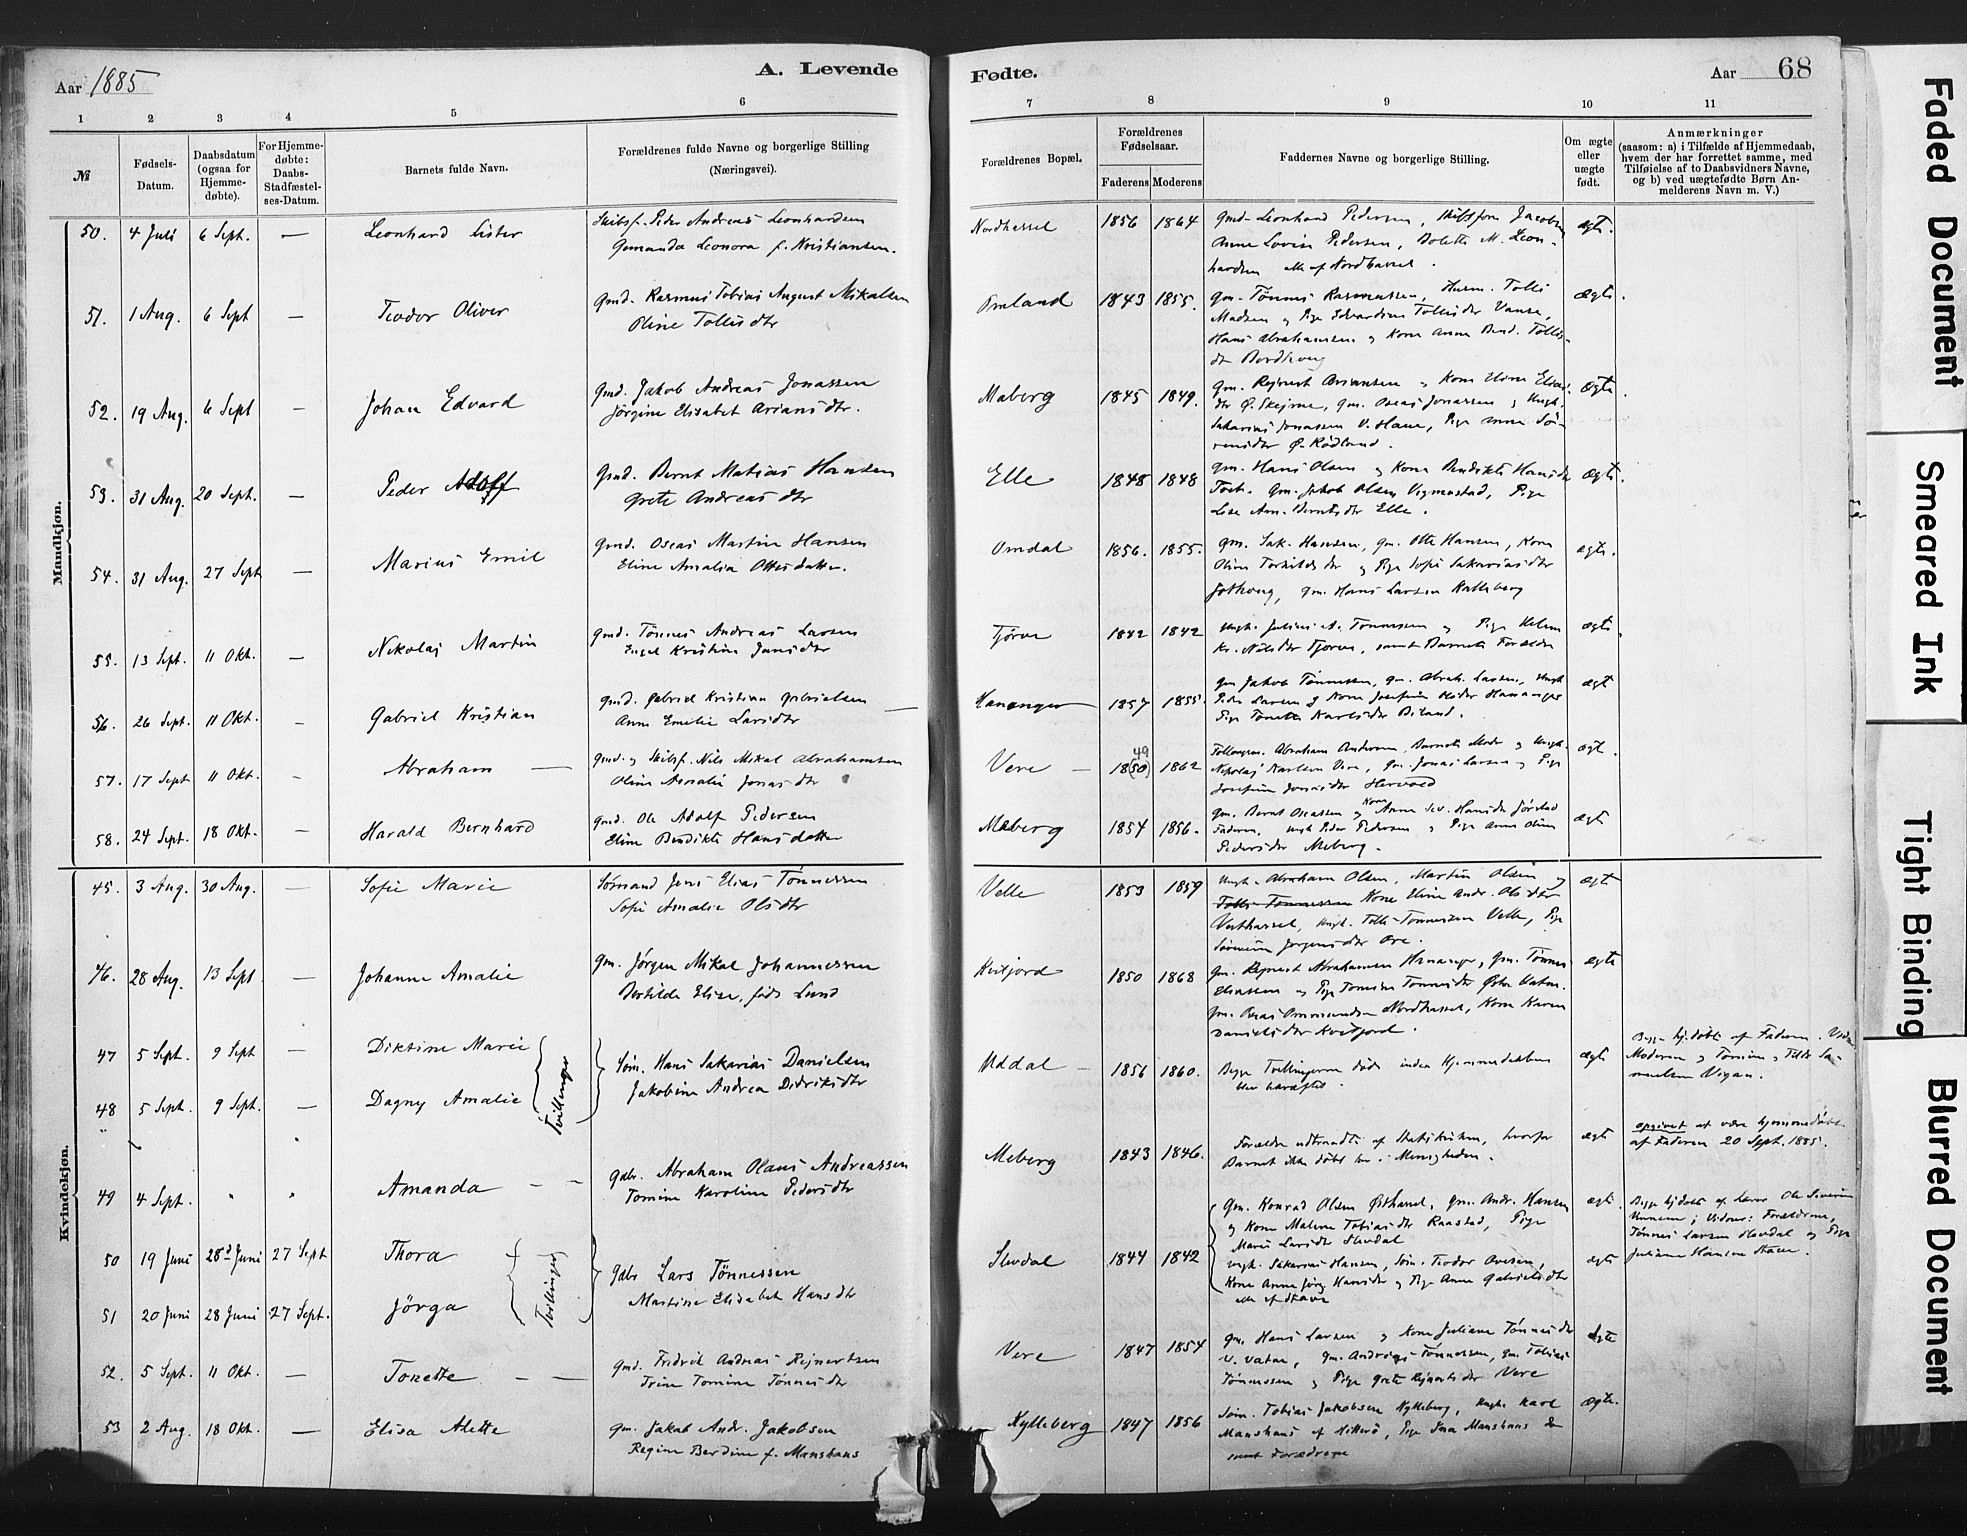 Aar 1885
A. Levende
Fødte.
Aar 68
1 2 3 4 5 6 7 8 9 10 11
№
Fødsels-Datum.
Daabsdatum (ogsaa for Hjemmedøbte).
For Hjemmedøbte: Daabs-Stadfæstelses-Datum.
Barnets fulde Navn.
Forældrenes fulde Navne og borgerlige Stilling (Næringsvei).
Forældrenes Bopæl.
Forældrenes Fødselsaar.
Faderens Moderens
Faddernes Navne og borgerlige Stilling.
Om ægte eller uægte født.
Anmærkninger
(saasom: a) i Tilfælde af Hjemmedaab,
hvem der har forrettet samme, med
Tilføielse af to Daabsvidners Navne,
og b) ved uægtefødte Børn Anmelderens Navn m. V.)
Mandkjøn.
50. 4 Juli 6 Sept. — Leonhard Lister
Skibsf. Peder Andreas Leonhardsen
Gemanda Leonora f. Kristiansen.
Nordhassel 1856 1864
Gmd. Leonhard Pedersen,
Anne Lovise Pedersen, Bolette M. Leonhardsen alle af Nordhassel.
ægte.
51. 1 Aug. 6 Sept — Teodor Oliver
Gmd. Rasmus Tobias August Mikalsen
Oline Tollisdtr
Omland 1843 1855.
Gm. Tønnes Rasmussen, Husm. Tollis
Madsen og Pige Edvardine Tollisdtr Vanse,
Hans Abrahamsen og Kone Anne Bend. Tollisdtr
ægte.
52. 19 Aug. 6 Sept — Johan Edvard
Gmd. Jakob Andreas Jonassen
Jörgine Elisabet Ariansdtr.
Meberg 1845 1849.
Gm. Rejnert Ariansen og Kone Eline
Ø. Skejme, Gm. Oseas Jonassen og Ungk.
Sakarias Jonassen V. Hane, Pige Anne Sörensdtr Ø. Rödland.
Ægte.
53. 31 Aug. 20 Sept. — Peder Adolf
Gmd. Bernt Matias Hansen
Grete Andreasdtr
Elle 1848 1848
Gm. Hans Olsen og Kone Bendikte Hansdtr
Gm. Jakob Olsen Vigmostad, Pige
Lise Am. Berntsdtr Elle.
ægte.
54. 31 Aug. 27 Sept — Marius Emil
Gmd. Oseas Martin Hansen
Eline Amalia Ottesdatter.
Omdal 1856. 1855.
Gm. Sak. Hansen, Gm. Otte Hansen, Kone
Oline Torkildsdtr og Pige Sofie Sakariasdtr
Gm. Hans Larsen Kalleberg
ægte.
55. 13 Sept. 11 Okt. — Nikolaj Martin
Gmd. Tönnes Andreas Larsen
Engel Kristine Jansdtr
Tjörve 1842 1842
Ungk. Julius A. Tönnessen og Pige Helene
Kr. Nilsdtr Tjörve, samt Barnets Forældre
ægte.
56. 26 Sept. 11 Okt. — Gabriel Kristian
Gmd. Gabriel Kristian Gabrielsen
Anne Emilie Larsdtr
Hananger 1857 1855.
Gm Jakob Tönnessen, Gm. Abrah. Larsen, Ungk
Peder Larsen og Kone Josefine Hananger
Pige Tonette Karlsdtr Biland.
ægt
57. 17 Sept 11 Okt. - Abraham —
Gmd. og Skibsf. Nils Mikal Abrahamsen
Oline Amalie Jonasdtr
Vere 49 18(50) 1862
Abraham Andersen, Barnets Moder og Ungk.
Nikolaj Karlsen Vere, Gm. Jonas Larsen og Pige
Josefine Jonasdtr
ægt.
58. 24 Sept. 18 Okt. — Harald Bernhard
Gmd. Ole Adolf Pedersen
Eline Bendikte Hansdatter
Meberg 1854 1856.
Gm. Bernt Oseassen og Kone Anne Sev. Hansdtr
Faderen, Ungk Peder Pedersen og Pige Anne Oline
Pedersdtr Meberg.
ægte
Kvindekjøn.
45. 3 Aug. 30 Aug. — Sofie Marie
Sömand Jens Elias Tönnessen
Sofie Amalie Olsdtr
Velle 1853 1859
Ungk. Abraham Olsen, Martin Olsen og
Tollis Tönnessen Kone Eline Andr. Olsdtr
Vesthassel, Ungk. Tollis Tönnessen Velle, Pige
Jörgensdtr Ore.
ægte
46. 28 Aug. 13 Sept — Johanne Amalie
Gm. Jörgen Mikal Johannessen
Bertilde Elise, föds Lund
Kvitjord 1850 1868
Gm. Rejnert Abrahamsen Hananger, Gm. Tönnes
Eliassen og Pige Tomine Tönnesdtr Østre Vatne.
Gm. Oseas Ommundsen Nordhassel, Kone Karen
Danielsdtr Kvitjord.
ægte
47 5 Sept. 9 Sept — Diktine Marie
48 5 Sept. 9 Sept. — Dagny Amalie
Tvillinger
Söm. Hans Sakarias Danielsen
Jakobine Andrea Didriksdtr
Uddal 1856 1860.
Begge Tvillingerne döde inden Hjemmedaaben
blev bekræftet.
ægte
Begge hj. döbte af Faderen. Vidn.
Moderen og Tomine og Tollis Samuelsen Vigan.
49 4 Sept. " " Amanda — —
Gdbr. Abraham Olaus Andreassen
Tomine Karoline Pedersdtr
Meberg 1843 1846.
Forældre udtraadte af Statskirken, hvorfor
Barnet ikke döbt her i Menigheden.
ægte
opgivet at være hjemmedöbt
af Faderen 20 Sept. 1885.
50 19 Juni 28 Juni 27 Sept Thora
51 20 Juni 28 Juni 27 Sept. Jörga
Tvillinger
Gdbr Lars Tönnessen
Martine Elisabet Hansdtr
1844 1842
Gm. Konrad Olsen Østhassel, Gm. Andr. Hansen
og Kone Malene Tobiasdtr Raastad, Pige
Marie Larsdtr
Ungk. Sakarias Hansen, Söm. Teodor
Kone Anne Jörg. Hansdtr og Pige Anne Gabrielsdtr
alle af Stave
ægte
ægte
Begge hjdöbte af Lærer Ole Severin
Vidner: Forældrene,
Tönnes Larsen og Pige
Juliane Hansen Stave.
52. 5 Sept. 11 Okt. — Tonette — —
Gmd. Fredrik Andreas Rejnertsen
Trine Tomine Tönnesdtr
Vere 1847 1854
Gm. Hans Larsen og Kone Juliane Tönnesdtr
V. Vatne, Gm. Andreas Tönnessen, Gm. Tobias
Tönnessen og Pige Grete Rejnertsdtr Vere
ægte
53 2 Aug. 18 Okt. — Elisa Alette
Gm. Jakob Andr. Jakobsen
Regine Berdine f. Manshaus
Kylleberg 1847 1856
Söm. Tobias Jakobsen Kylleberg, Ungk. Karl
Manshaus af Hitterö, Pige Ina Manshaus
samt Forældrene
ægte.
Faded Document
Smeared Ink
Tight Binding
Blurred Document